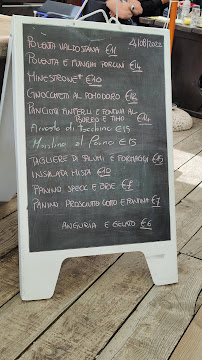 24/08/2022
POLENTA VALDOSTANA €11
POLENTA E FUNGHI PORCINI €14
MINESTRONE* €10
GNOCCHETTI AL POMODORO €12
PANCIOTTI FINFERLI E FONTINA AL
BURRO E TIMO €14
Arrosto di Tacchino €15
Merluzzo al Forno €15
TAGLIERE DI SALUMI E FORMAGGI €15
INSALATA MISTA €10
PANINO SPECK E BRIE €7
PANINO PROSCIUTTO COTTO E FONTINA €7
ANGURIA E GELATO €6